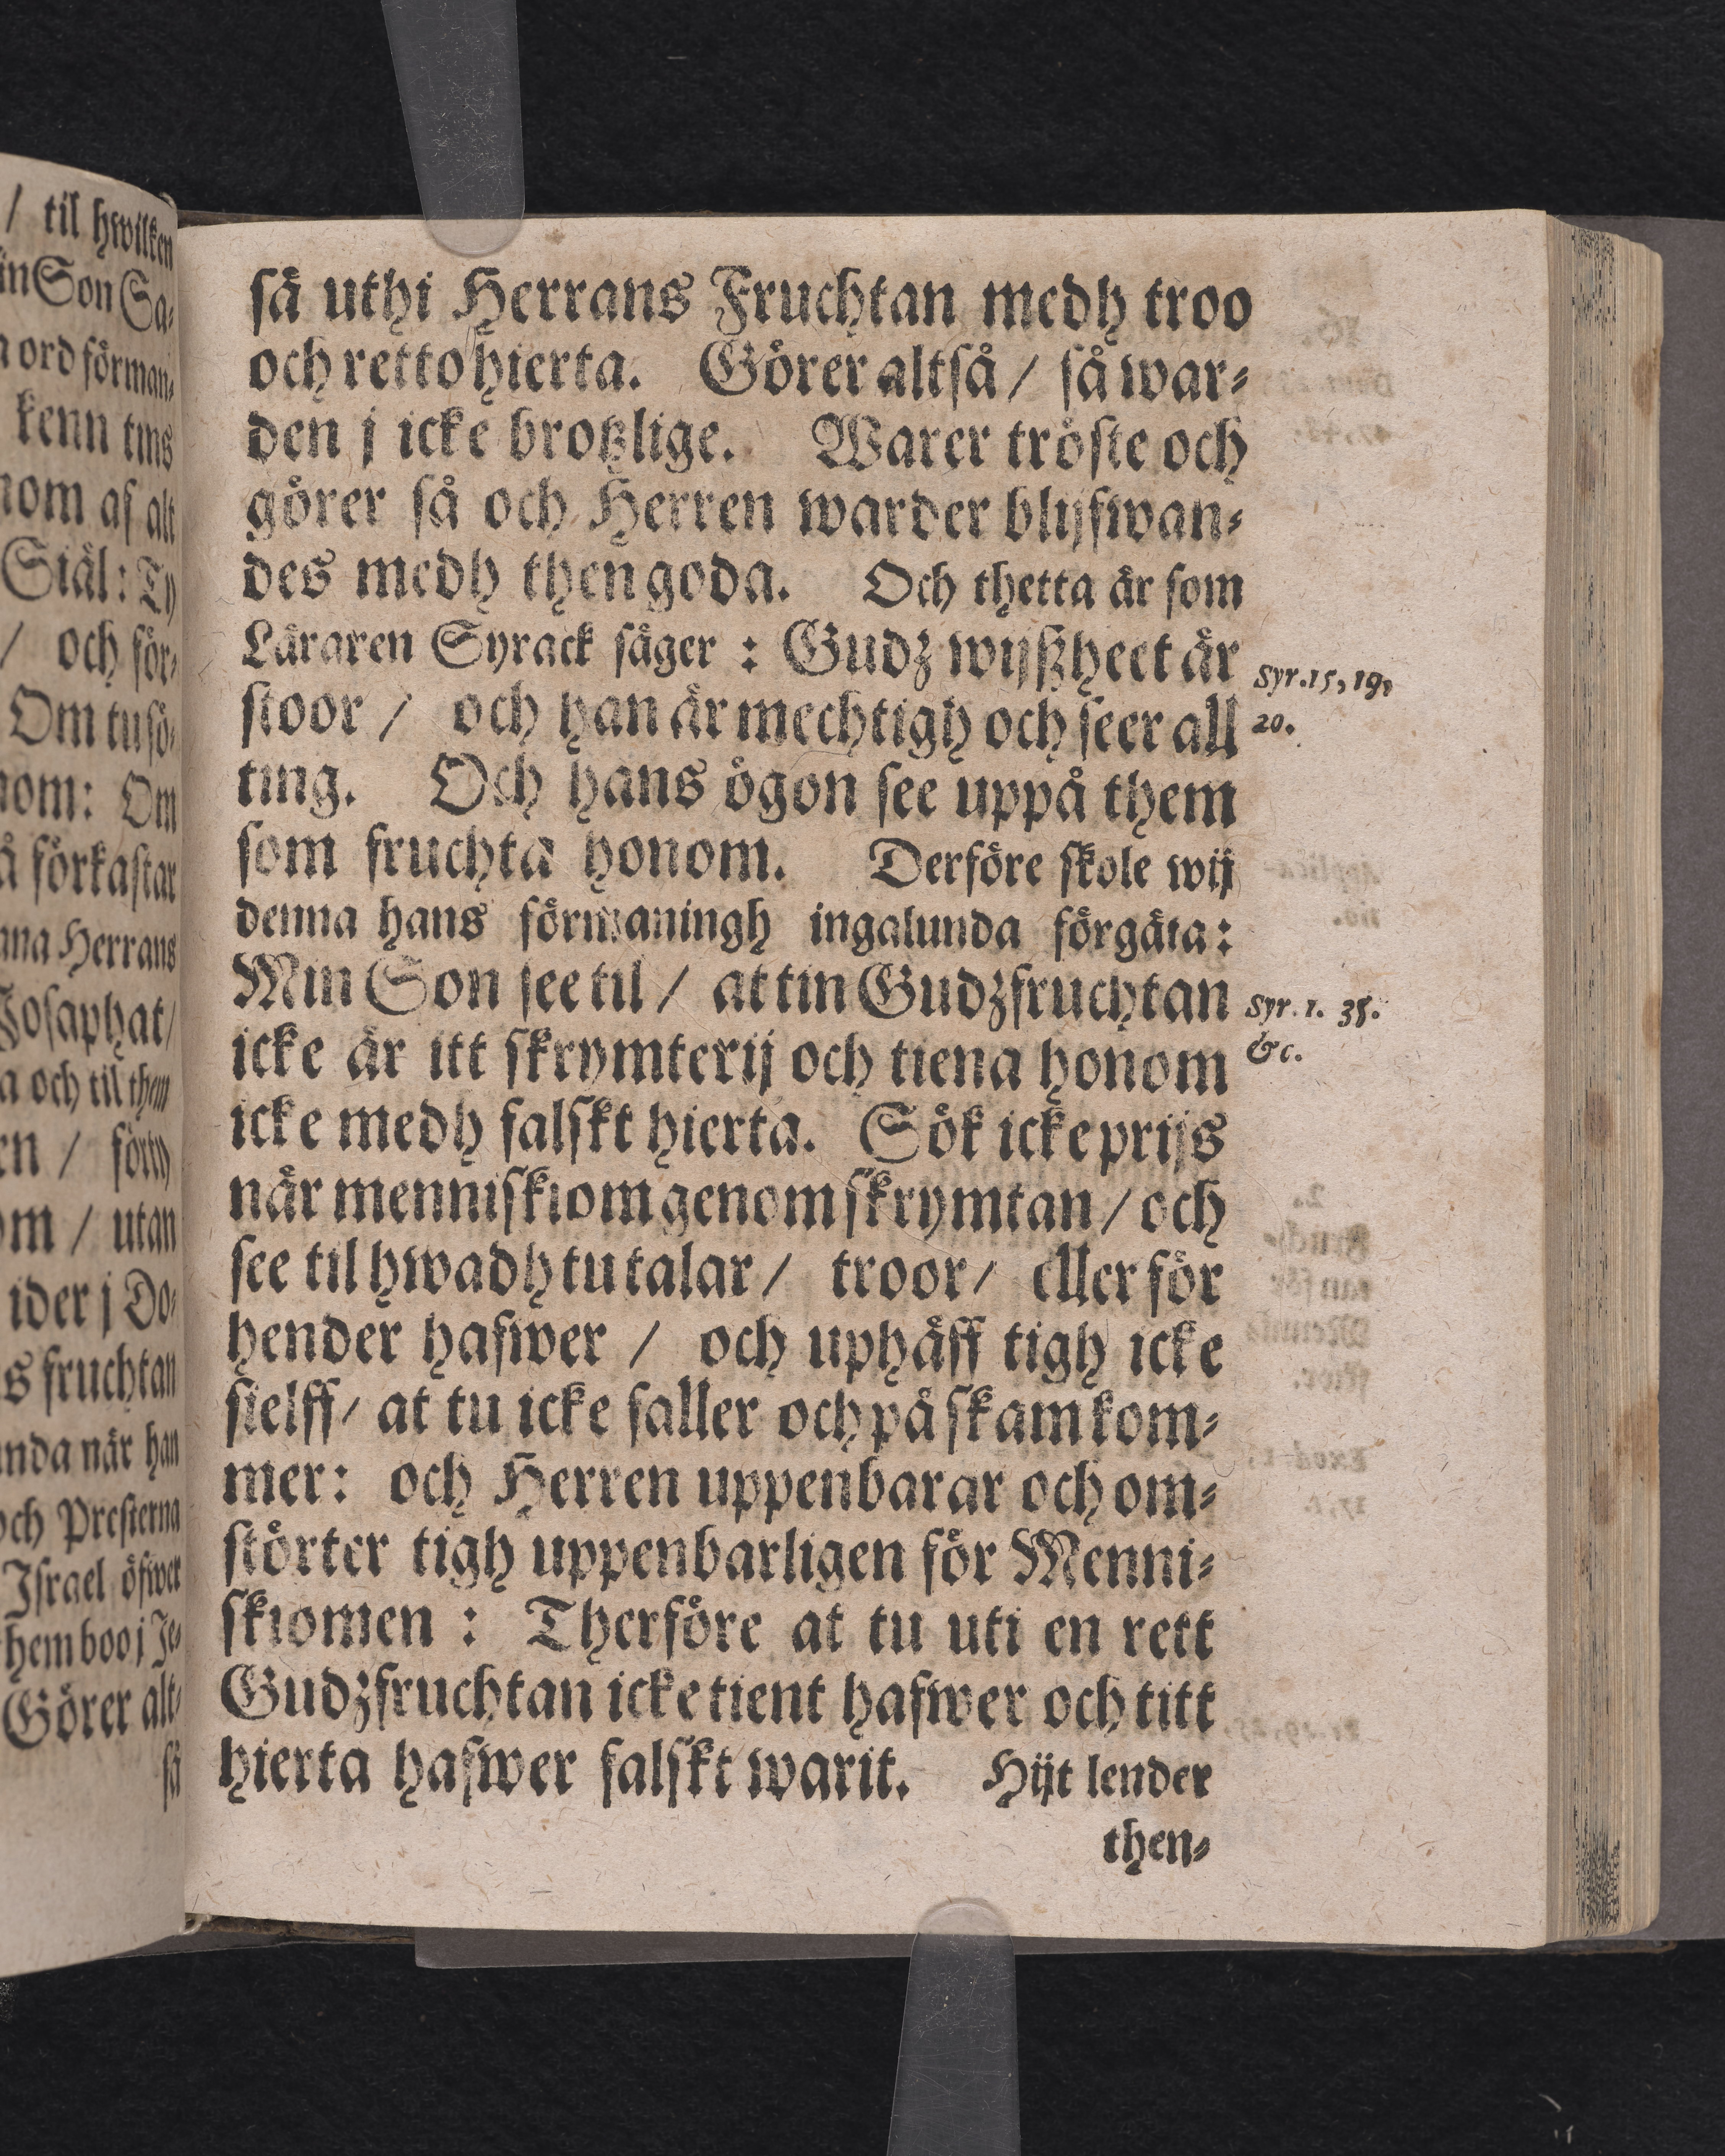 / til hwilken
in Son Sa-
ord förman-
kenn tins
nom af alt
Siäl: Ty
/ och för-
Om tu sö-
nom: Om
å förkastar
Herrans
Josaphat/
a och til them
en / förty
om / utan
ider j Do-
s fruchtan
nda när han
och Presterna
Israel öfwer
them boo j Je-
Görer alt-
så
så uthi Herrans Fruchtan medh troo
och retto hierta. Görer altså / så war-
den j icke brotzlige. Warer tröste och
görer så och Herren warder blijfwan-
des medh then goda. Och thetta är som
Läraren Syrack säger : Gudz wijßheet är
Syr. 15, 19,
stoor / och han är mechtigh och seer all
20.
ting. Och hans ögon see uppå them
som fruchta honom. Derföre skole wij
denna hans förmaningh ingalunda förgäta:
Min Son see til / at tin Gudzfruchtan
Syr. 1. 35.
icke är itt skrymterij och tiena honom
&c.
icke medh falskt hierta. Sök icke prijs
när menniskiom genom skrymtan / och
see til hwadh tu talar / troor / eller för
hender hafwer / och uphäff tigh icke
sielff / at tu icke faller och på skam kom-
mer: och Herren uppenbarar och om-
störter tigh uppenbarligen för Menni-
skiomen : Therföre at tu uti en rett
Gudzfruchtan icke tient hafwer och titt
hierta hafwer falskt warit. Hijt lender
then-